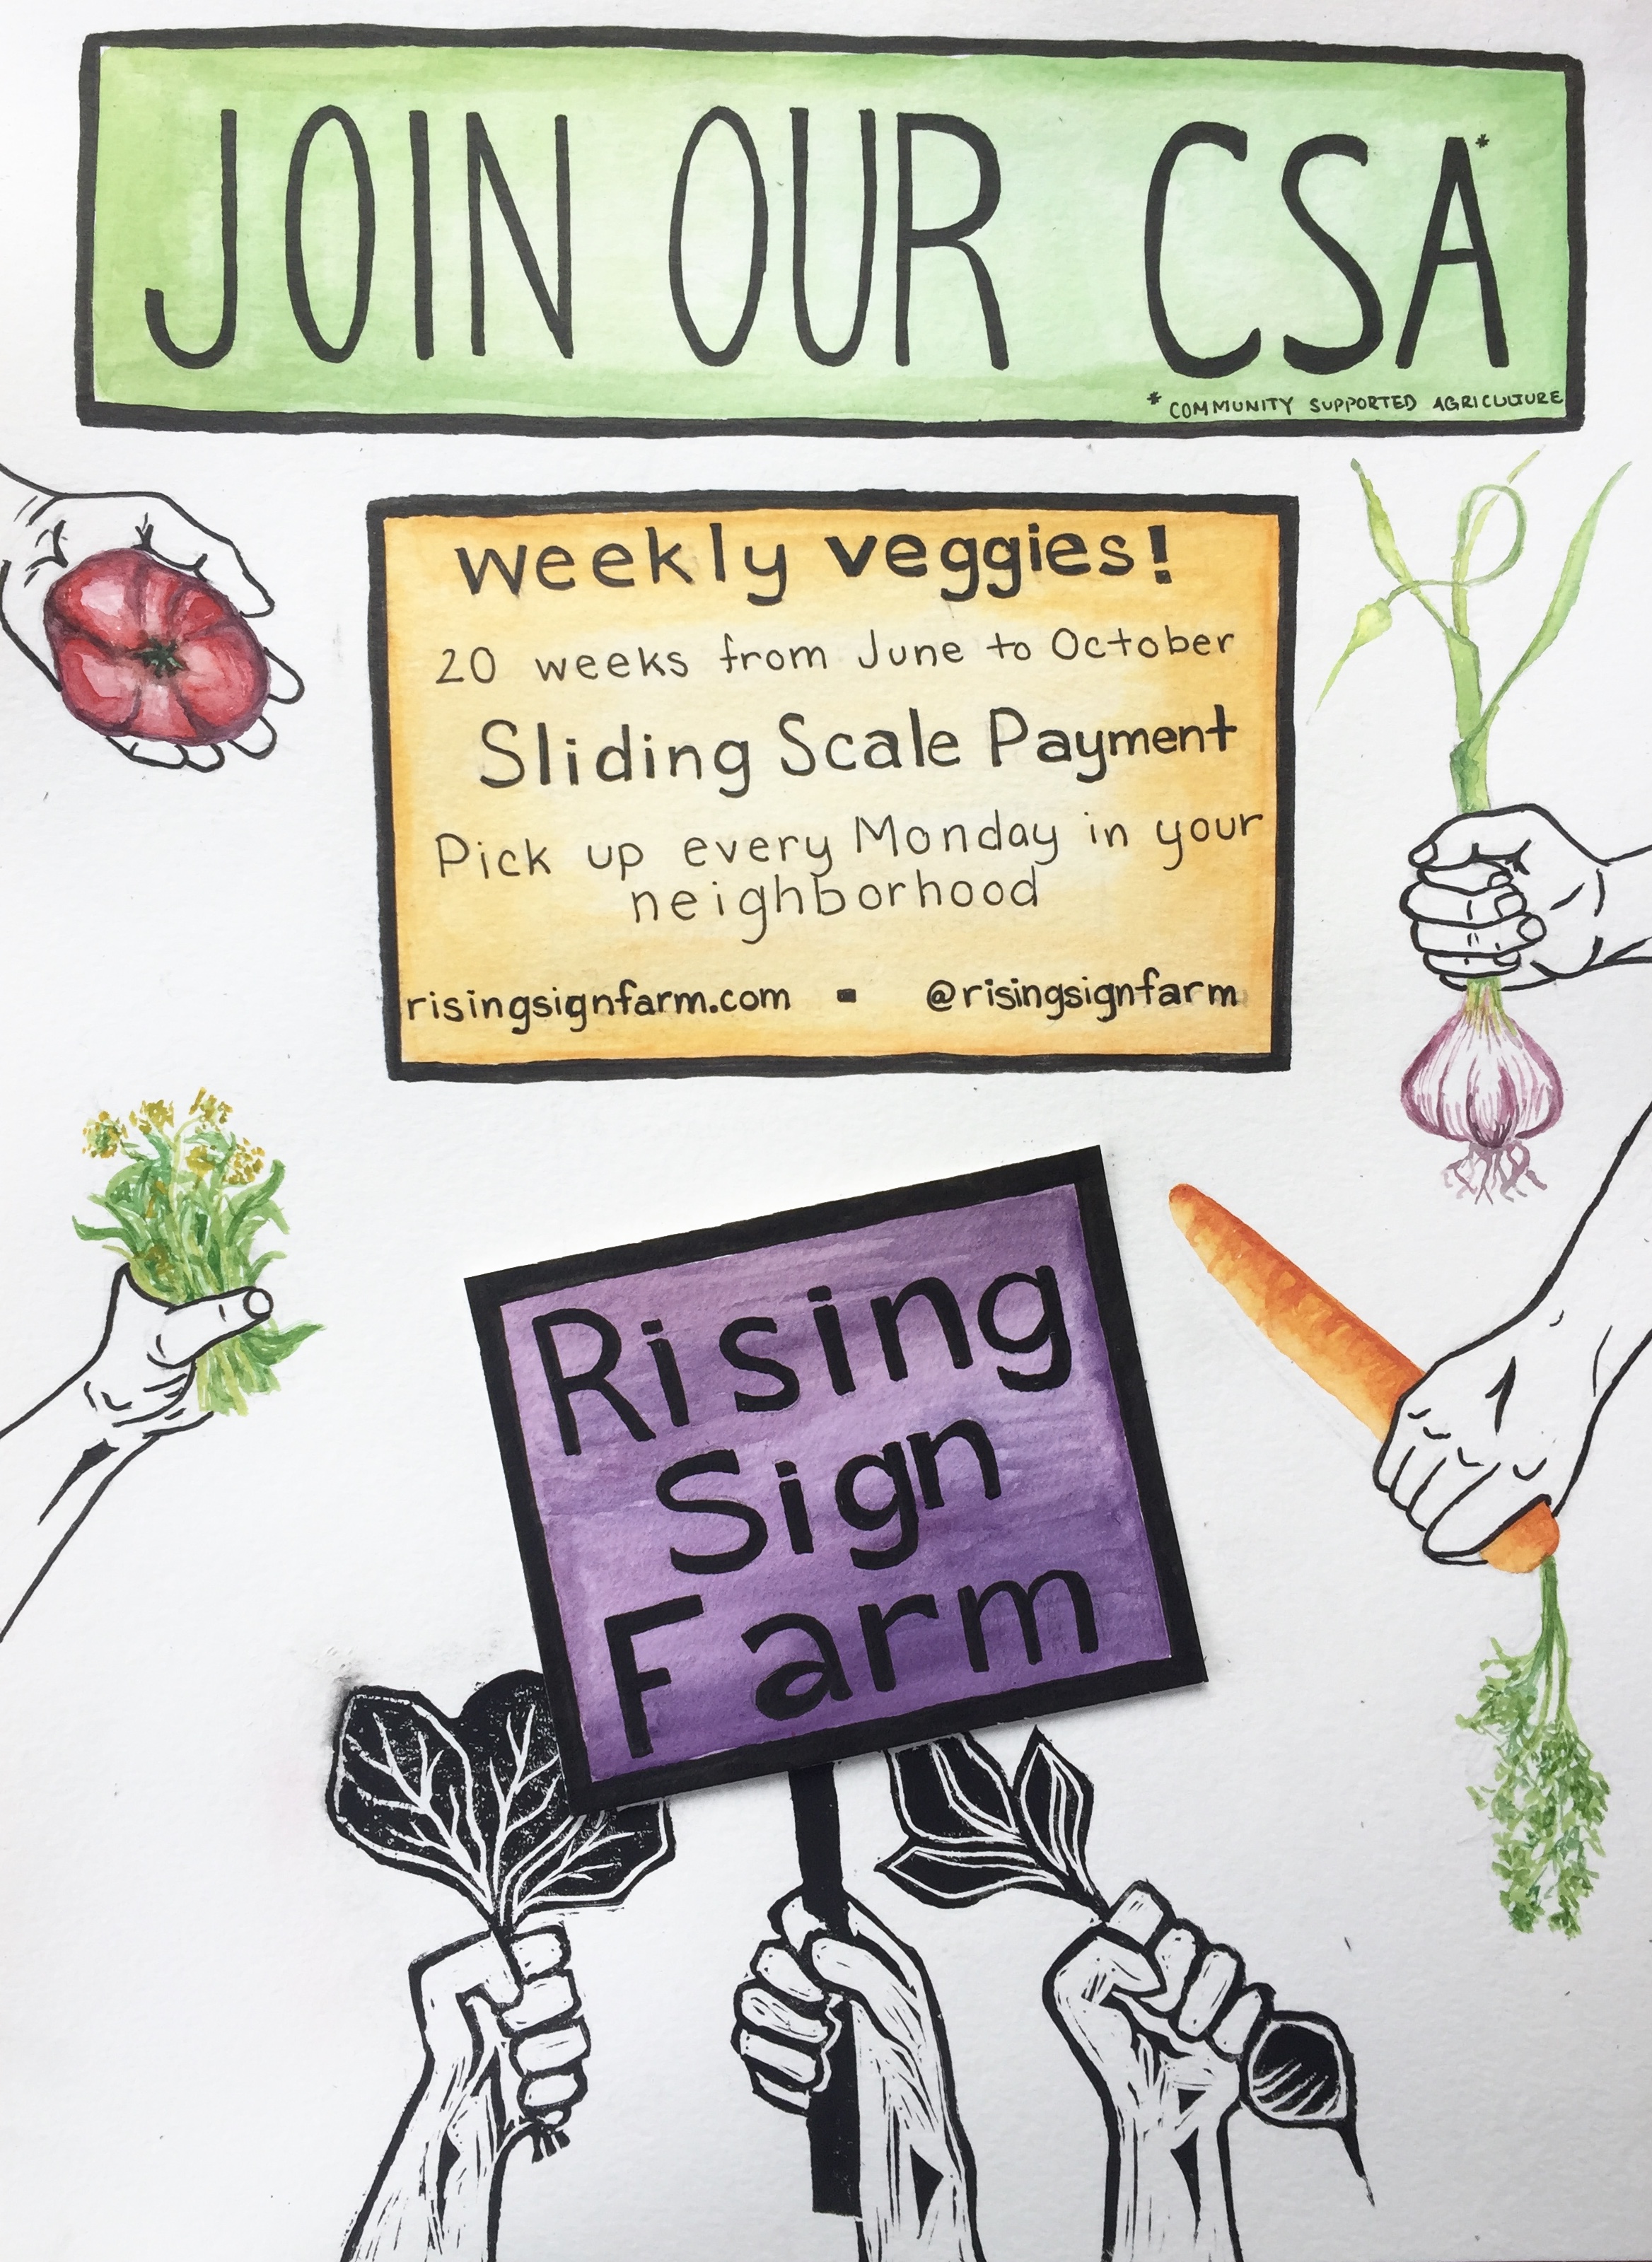 JOIN OUR CSA*
* COMMUNITY SUPPORTED AGRICULTURE
weekly veggies!
20 weeks from June to October
Sliding Scale Payment
Pick up every Monday in your
neighborhood
risingsignfarm.com ▪ @risingsignfarm
Rising
Sign
Farm